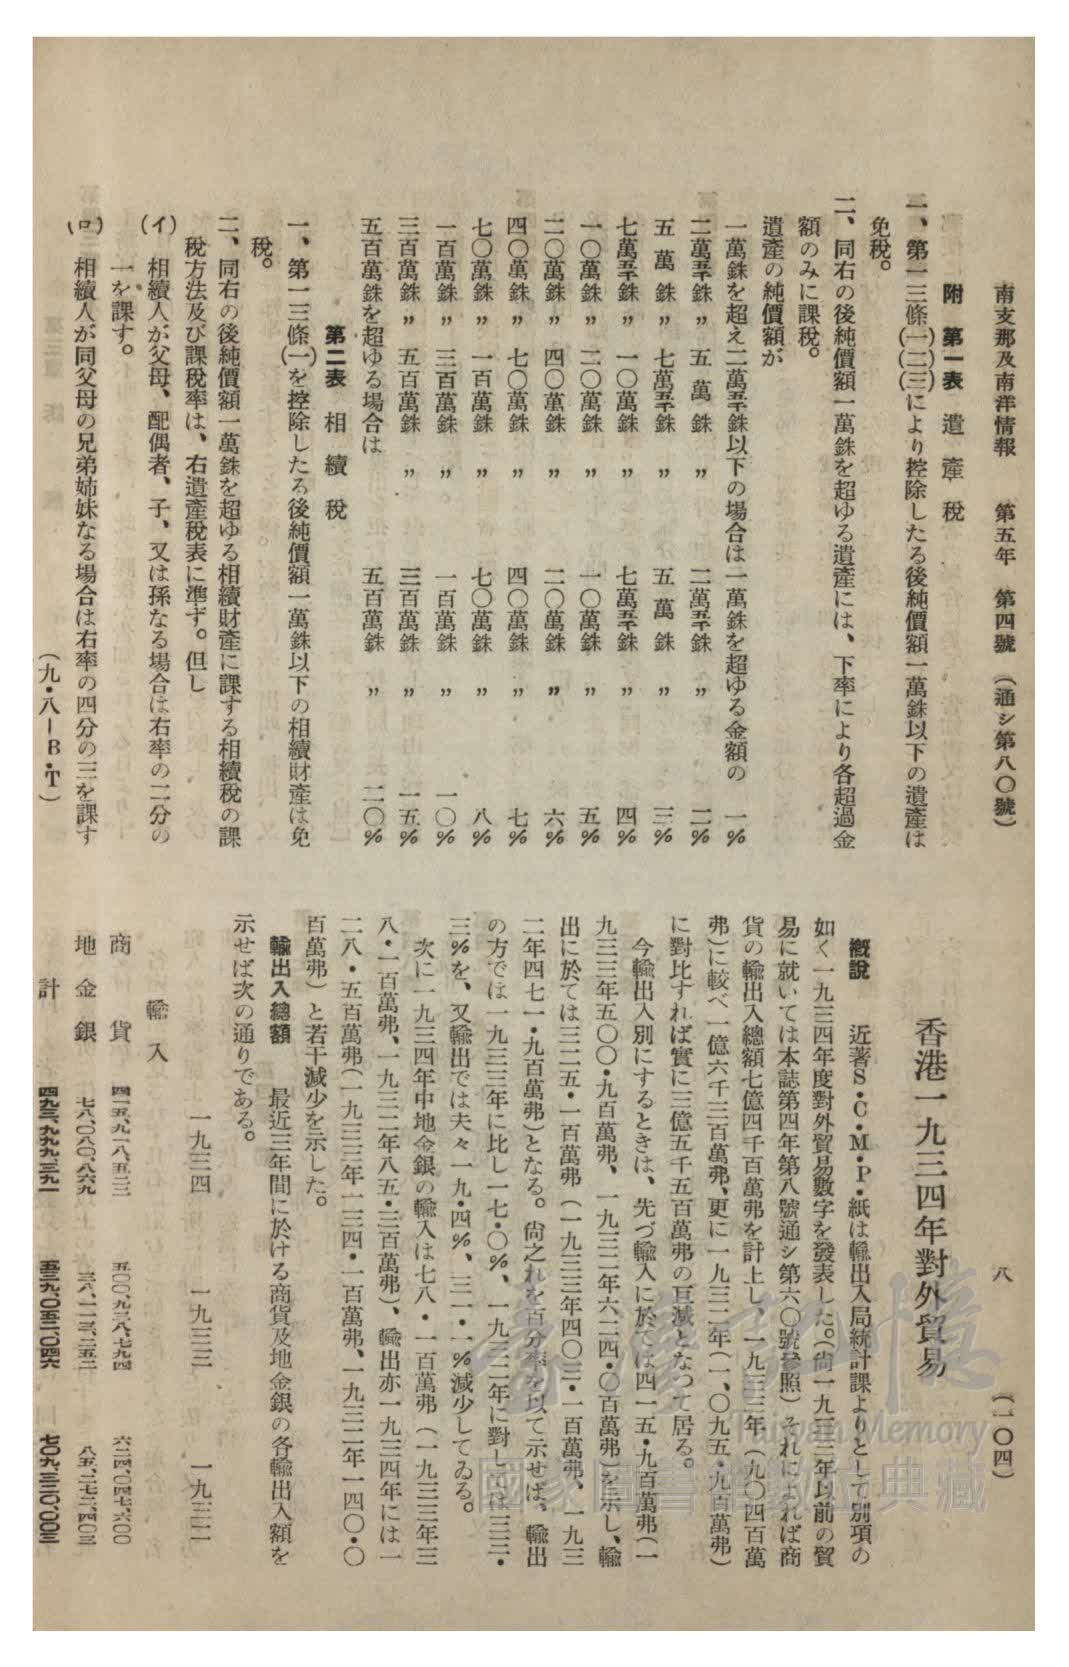 南支那及南洋情報　第五年　第四號　(通シ第八〇號)
八　(一〇四)
附　第一表　遺產稅
一、第一三條(一)(二)(三)により控除したる後純價額一萬銖以下の遺產は
免稅。
二、同右の後純價額一萬銖を超ゆる遺產には、下率により各超過金
額のみに課稅。
遺產の純價額が
一萬銖を超え二萬五千銖以下の場合は一萬銖を超ゆる金額の　一%
二萬五千銖〃　五萬銖　〃　二萬五千銖　〃　二%
五萬銖〃　七萬五千銖　〃　五萬銖　〃　三%
七萬五千銖〃　一〇萬銖　〃　七萬五千銖　〃　四%
一〇萬銖〃　二〇萬銖　〃　一〇萬銖　〃　五%
二〇萬銖〃　四〇萬銖　〃　二〇萬銖　〃　六%
四〇萬銖〃　七〇萬銖　〃　四〇萬銖　〃　七%
七〇萬銖〃　一百萬銖　〃　七〇萬銖　〃　八%
一百萬銖〃　三百萬銖　〃　一百萬銖　〃　一〇%
三百萬銖〃　五百萬銖　〃　三百萬銖　〃　一五%
五百萬銖を超ゆる場合は　五百萬銖　〃　二〇%
第二表　相續稅
一、第一三條(一)を控除したる後純價額一萬銖以下の相續財產は免
稅。
二、同右の後純價額一萬銖を超ゆる相續財產に課する相續稅の課
稅方法及び課稅率は、右遺產稅表に準ず。但し
(イ)　相續人が父母、配偶者、子、又は孫なる場合は右率の二分の
一を課す。
(ロ)　相續人が同父母の兄弟姉妹なる場合は右率の四分の三を課す
(九・八—B・T)
香港一九三四年對外貿易
槪說　近著S・C・M・P・紙は輸出入局統計課よりとして別項の
如く一九三四年度對外貿易數字を發表した。(尙一九三三年以前の貿
易に就いては本誌第四年第八號通シ第六〇號參照)それによれば商
貨の輸出入總額七億四千百萬弗を計上し、一九三三年(九〇四百萬
弗)に較べ一億六千三百萬弗、更に一九三二年(一、〇九五・九百萬弗)
に對比すれば實に三億五千五百萬弗の巨減となつて居る。
今輸出入別にするときは、先づ輸入に於ては四一五・九百萬弗(一
九三三年五〇〇・九百萬弗、一九三二年六二四・〇百萬弗)を示し、輸
出に於ては三二五・一百萬弗(一九三三年四〇三・一百萬弗、一九三
二年四七一・九百萬弗)となる。尙之れを百分率を以て示せば、輸出
の方では一九三三年に比し一七・〇%、一九三二年に對しては三三・
三%を、又輸出では夫々一九・四%、三一・一%減少してゐる。
次に一九三四年中地金銀の輸入は七八・一百萬弗(一九三三年三
八・一百萬弗、一九三二年八五・三百萬弗)、輸出亦一九三四年には一
二八・五百萬弗(一九三三年一三四・一百萬弗、一九三二年一四〇・〇
百萬弗)と若干減少を示した。
輸出入總額　最近三年間に於ける商貨及地金銀の各輸出入額を
示せば次の通りである。
一九三四　一九三三　一九三二
輸入
商貨　四一五、九一八、五二二　五〇〇、九三八、七九四　六二四、〇四七、六〇〇
地金銀　七八、〇八〇、八六九　三八、一一三、二五二　八五、二七二、四〇三
計　四九三、九九九、三九一　五三九、〇五二、〇四六　七〇九、三二〇、〇〇三
臺灣記憶
Taiwan Memory
國家圖書館數位典藏